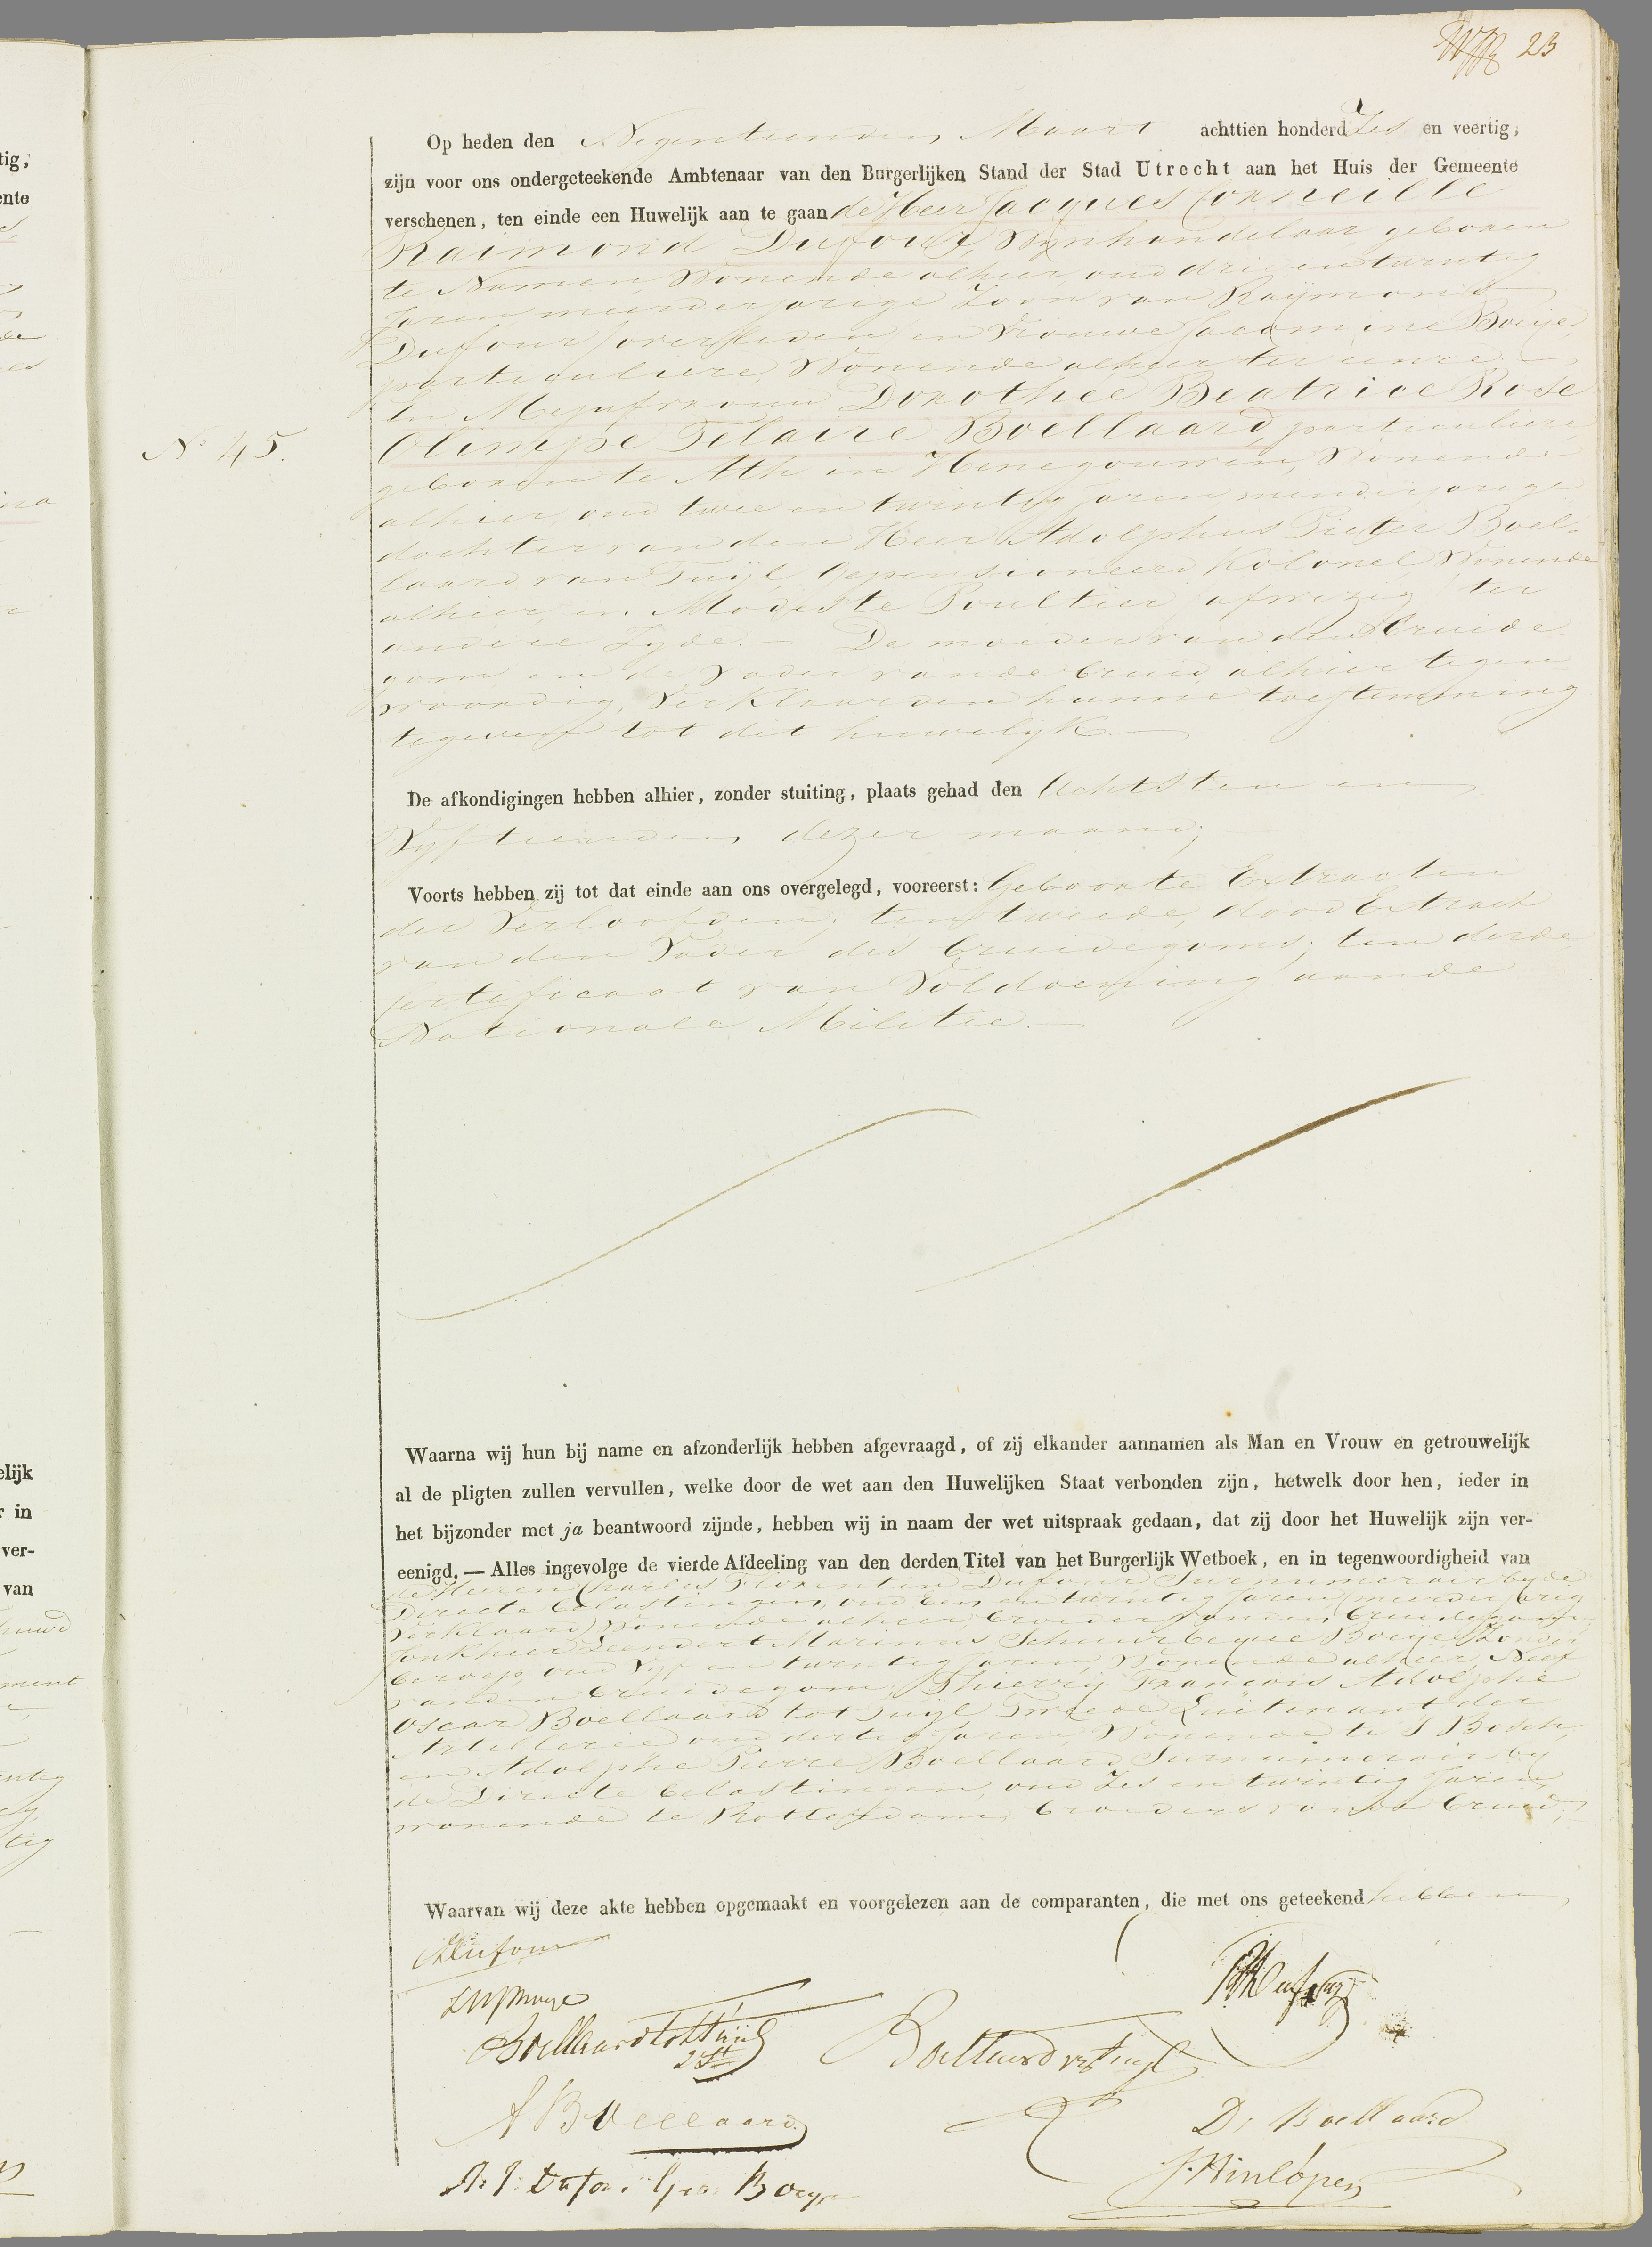 23
Op heden den Negentienden Maart achttien honderd Zes en veertig,
zijn voor ons ondergeteekende Ambtenaar van den Burgerlijken Stand der Stad Utrecht aan het Huis der Gemeente
verschenen, ten einde een Huwelijk aan te gaan de Heer Jacques Corneille
Raimond Dufour, Wijnhandelaar geboren
te Namen, Wonende alhier, oud drie en twintig
Jaren meerderjarige Zoon van Raÿmond
Dufour overleden en Vrouwe Jacomine Boeije,
particuliere, Wonende alhier ter eenre
En Mejufvrouw Dorothée Beatrice Rose
N° 45.
Olimpe Telaire Boellaard, particuliere,
geboren te Ath in Henegouwen, Wonende
alhier, oud twee en twintig Jaren minderjarige
dochter van den Heer Adolphus Pieter Boel-
laard van Tuijl Gepensioneerd Kolonel Wonende
alhier, en Modeste Poultier afwezig ter
andere Zyde. — De moeder van den Bruide-
gom en de Vader van de bruid alhier tegen
woordig, Verklaarden hunne toestemming
tegeven tot dit huwelijk. —
De afkondigingen hebben alhier, zonder stuiting, plaats gehad den Achtsten en
Vyftienden dezer maand;
Voorts hebben zij tot dat einde aan ons overgelegd, vooreerst: Geboorte Extracten
der Verloofden; ten tweede, dood Extract
van den Vader des bruidegoms; ten derde
Certificaat van Voldoening aan de
Nationale Militie. —
Waarna wij hun bij name en afzonderlijk hebben afgevraagd, of zij elkander aannamen als Man en Vrouw en getrouwelijk
al de pligten zullen vervullen, welke door de wet aan den Huwelijken Staat verbonden zijn, hetwelk door hen, ieder in
het bijzonder met ja beantwoord zijnde, hebben wij in naam der wet uitspraak gedaan, dat zij door het Huwelijk zijn ver-
eenigd. — Alles ingevolge de vierde Afdeeling van den derden Titel van het Burgerlijk Wetboek, en in tegenwoordigheid van
de Heeren Charles Florentin Dufour Surnumerair by de
Directe belastingen, oud een en twintig Jaren, meerderjarig
Verklaard, Wonende alhier, broeder van den bruidegom,
Jonkheer Leendert Marinus Boeije Zonder
beroep, oud Vyf en twintig Jaren, Wonende alhier, Neef
van den bruidegom, Thierrÿ François Adolphe
Oscar Boellaard tot Tuijl Tweede Luitenant der
Artillerie oud dertig Jaren, Wonende te 's Bosch,
en Adolphe Pierre Boellaard Surnumerair by
de Directe belastingen, oud Zes en twintig Jaren,
wonende te Rotterdam, broeders van de bruid;
Waarvan wij deze akte hebben opgemaakt en voorgelezen aan de comparanten, die met ons geteekend hebben
Dufour
Boellaard tot Tuijl
2 Lt
Boellaard van Tuijl
A Boellaard
D. Boellaard
J. Hinlópen